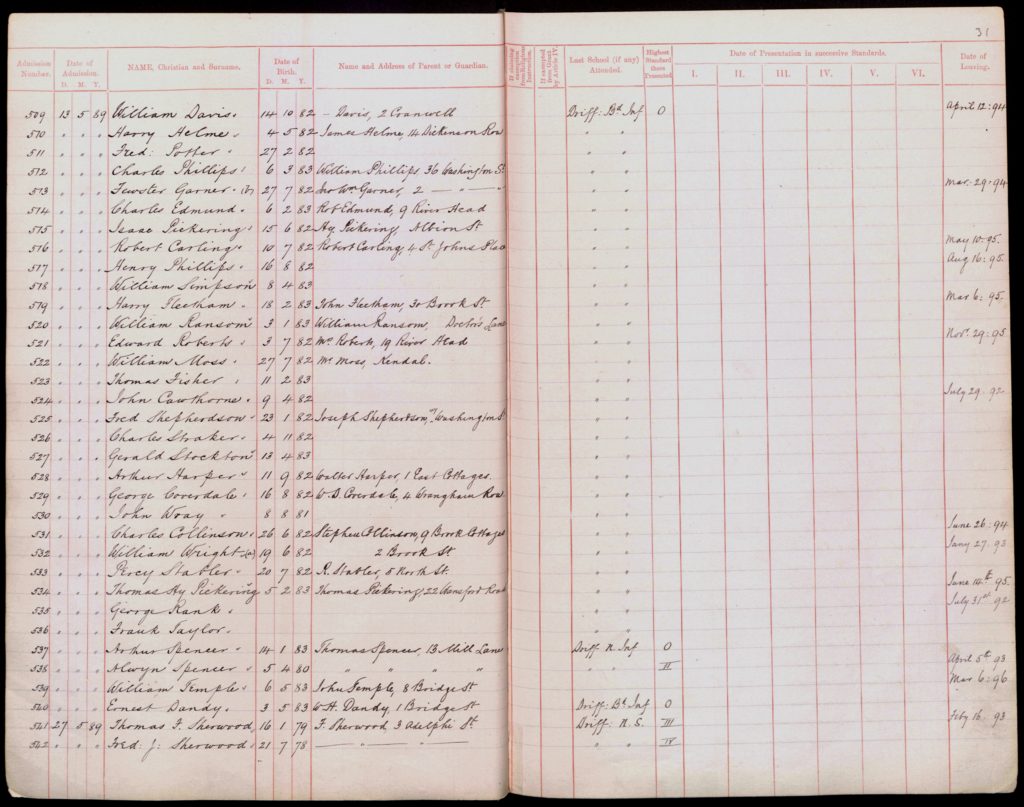 31
Admission Number. Date of Admission. D. M. Y. NAME, Christian and Surname. Date of Birth. D. M. Y. Name and Address of Parent or Guardian. If exempted from Religious Instruction. If exempted from Grant by Article IV. Last School (if any) Attended. Highest Standard there Presented Date of Presentation in successive Standards. I. II. III. IV. V. VI. Date of Leaving.
509 13 5 89 William Davis 14 10 82 – Davis, 2 Cranwell Driff: Bd Inf O April 12: 94
510 " " " Harry Helme 4 5 82 James Helme, 14 Dickenson Row " "
511 " " " Fred: Potter 27 2 82 " "
512 " " " Charles Phillips 6 3 83 William Phillips 36 Washington St " "
513 " " " Fewster Garner 27 7 82 Jno Wm Garner, 2 — " — " " " Mar: 29: 94
514 " " " Charles Edmund 6 2 83 Rob Edmund, 9 River Head " "
515 " " " Isaac Pickering 15 6 82 Hy Pickering, Albion St " "
516 " " " Robert Carling 10 7 82 Robert Carling, 4 St Johns Place " " May 10: 95.
517 " " " Henry Phillips 16 8 82 " " Aug 16: 95.
518 " " " William Simpson 8 4 83 " "
519 " " " Harry Fleetham 18 2 83 John Fleetham, 30 Brook St " " Mar 6: 95.
520 " " " William Ransom 3 1 83 William Ransom, Doctor's Lane " "
521 " " " Edward Roberts 3 7 82 Mr Roberts, 19 River Head " " Nov. 29: 95
522 " " " William Moss 27 7 82 Mr Moss, Kendal. " "
523 " " " Thomas Fisher 11 2 83 " "
524 " " " John Cawthorne 9 4 82 " " July 29. 92
525 " " " Fred Shepherdson 23 1 82 Joseph Shepherdson, Washington St " "
526 " " " Charles Straker 4 11 82 " "
527 " " " Gerald Stockton 13 4 83 " "
528 " " " Arthur Harper 11 9 82 Walter Harper, 1 East Cottages. " "
529 " " " George Coverdale 16 8 82 W D. Coverdale, 4 Wrangham Row " "
530 " " " John Wray 8 8 81 " "
531 " " " Charles Collinson 26 6 82 Stephen Collinson, 9 Brook Cottages " " June 26: 94
532 " " " William Wright 19 6 82 2 Brook St " " Jany 27. 93
533 " " " Percy Stabler 20 7 82 R. Stabler, 5 North St. " "
534 " " " Thomas Hy Pickering 5 2 83 Thomas Pickering, 22 Wansford Road " " June 14th 95.
535 " " " George Rank " " July 31st 92
536 " " " Frank Taylor " "
537 " " " Arthur Spencer 14 1 83 Thomas Spencer, 13 Mill Lane Driff N. Inf O
538 " " " Alwyn Spencer 5 4 80 " " " " " " II April 5th 93
539 " " " William Temple 6 5 83 John Temple, 8 Bridge St Mar 6: 96
540 " " " Ernest Dandy 3 5 83 W H. Dandy, 1 Bridge St Driff: Bd Inf O
541 27 5 89 Thomas F. Sherwood 16 1 79 F. Sherwood 3 Adelphi St. Driff: N. S. III Feby 16. 93
542 " " " Fred: J: Sherwood 21 7 78 — " — " — " " IV